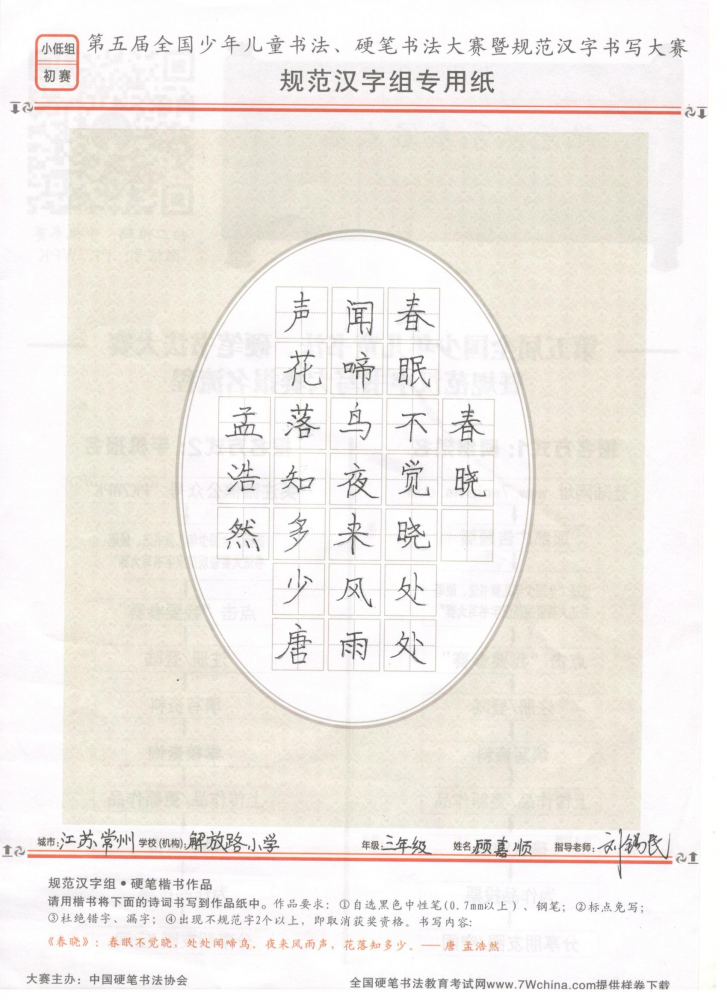 小低组
初赛
第五届全国少年儿童书法、硬笔书法大赛暨规范汉字书写大赛
规范汉字组专用纸
春晓
春眠不觉晓处处
闻啼鸟夜来风雨
声花落知多少唐
孟浩然
城市:江苏常州 学校(机构):解放路小学 年级:三年级 姓名:顾嘉顺 指导老师:刘锡民
规范汉字组•硬笔楷书作品
请用楷书将下面的诗词书写到作品纸中。作品要求:①自选黑色中性笔(0.7mm以上)、钢笔;②标点免写;
③杜绝错字、漏字;④出现不规范字2个以上,即取消获奖资格。书写内容:
《春晓》:春眠不觉晓,处处闻啼鸟。夜来风雨声,花落知多少。——唐 孟浩然
大赛主办:中国硬笔书法协会
全国硬笔书法教育考试网www.7Wchina.com提供样卷下载